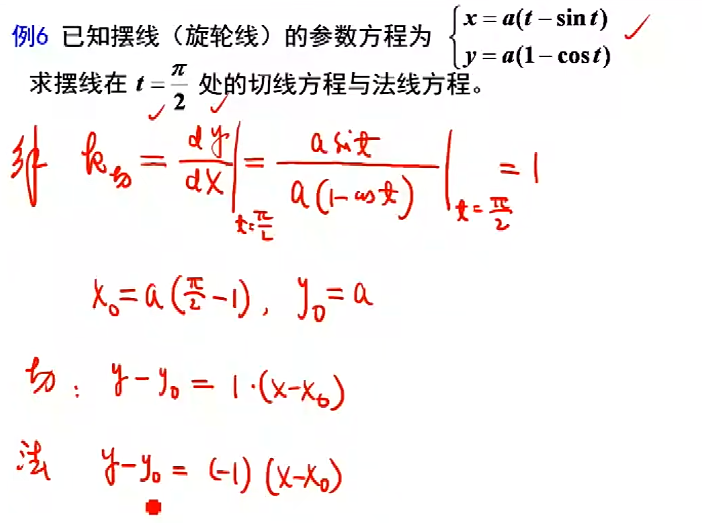 例6 已知摆线（旋轮线）的参数方程为 { x = a(t − sin t) ✓
y = a(1 − cos t)
求摆线在 t = π/2 处的切线方程与法线方程。
解 k切 = dy/dx |t=π/2 = a sin t / a(1 − cos t) |t=π/2 = 1
x₀ = a(π/2 − 1), y₀ = a
切: y − y₀ = 1·(x − x₀)
法 y − y₀ = (−1)(x − x₀)